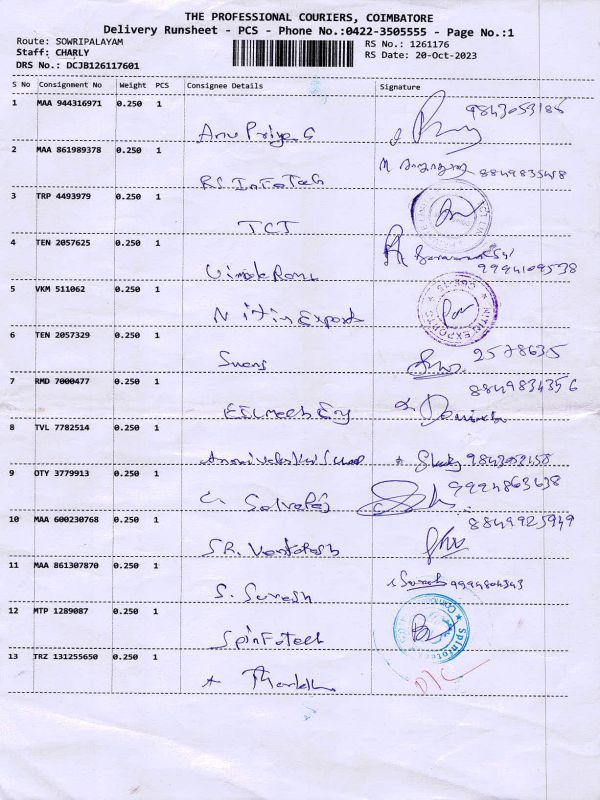 THE PROFESSIONAL COURIERS, COIMBATORE
Delivery Runsheet - PCS - Phone No.:0422-3505555 - Page No.:1
Route: SOWRIPALAYAM
RS No.: 1261176
Staff: CHARLY
RS Date: 20-Oct-2023
DRS No.: DCJB126117601
S No Consignment No Weight PCS Consignee Details Signature
1 MAA 944316971 0.250 1
Anu Priya G 9843053186
2 MAA 861989378 0.250 1
RS InfoTech 8849835458
3 TRP 4493979 0.250 1
TCT
4 TEN 2057625 0.250 1
9994109538
5 VKM 511062 0.250 1
Nitin Exports
NITIN EXPORTS
6 TEN 2057329 0.250 1
2578635
7 RMD 7000477 0.250 1
8849834356
8 TVL 7782514 0.250 1
9843052158
9 OTY 3779913 0.250 1
9994863638
10 MAA 600230768 0.250 1
SR. Venkatesh 8849925949
11 MAA 861307870 0.250 1
S. Suresh Suresh 9994804343
12 MTP 1289087 0.250 1
Spinfotech
Spinfotech
13 TRZ 131255650 0.250 1
D/C